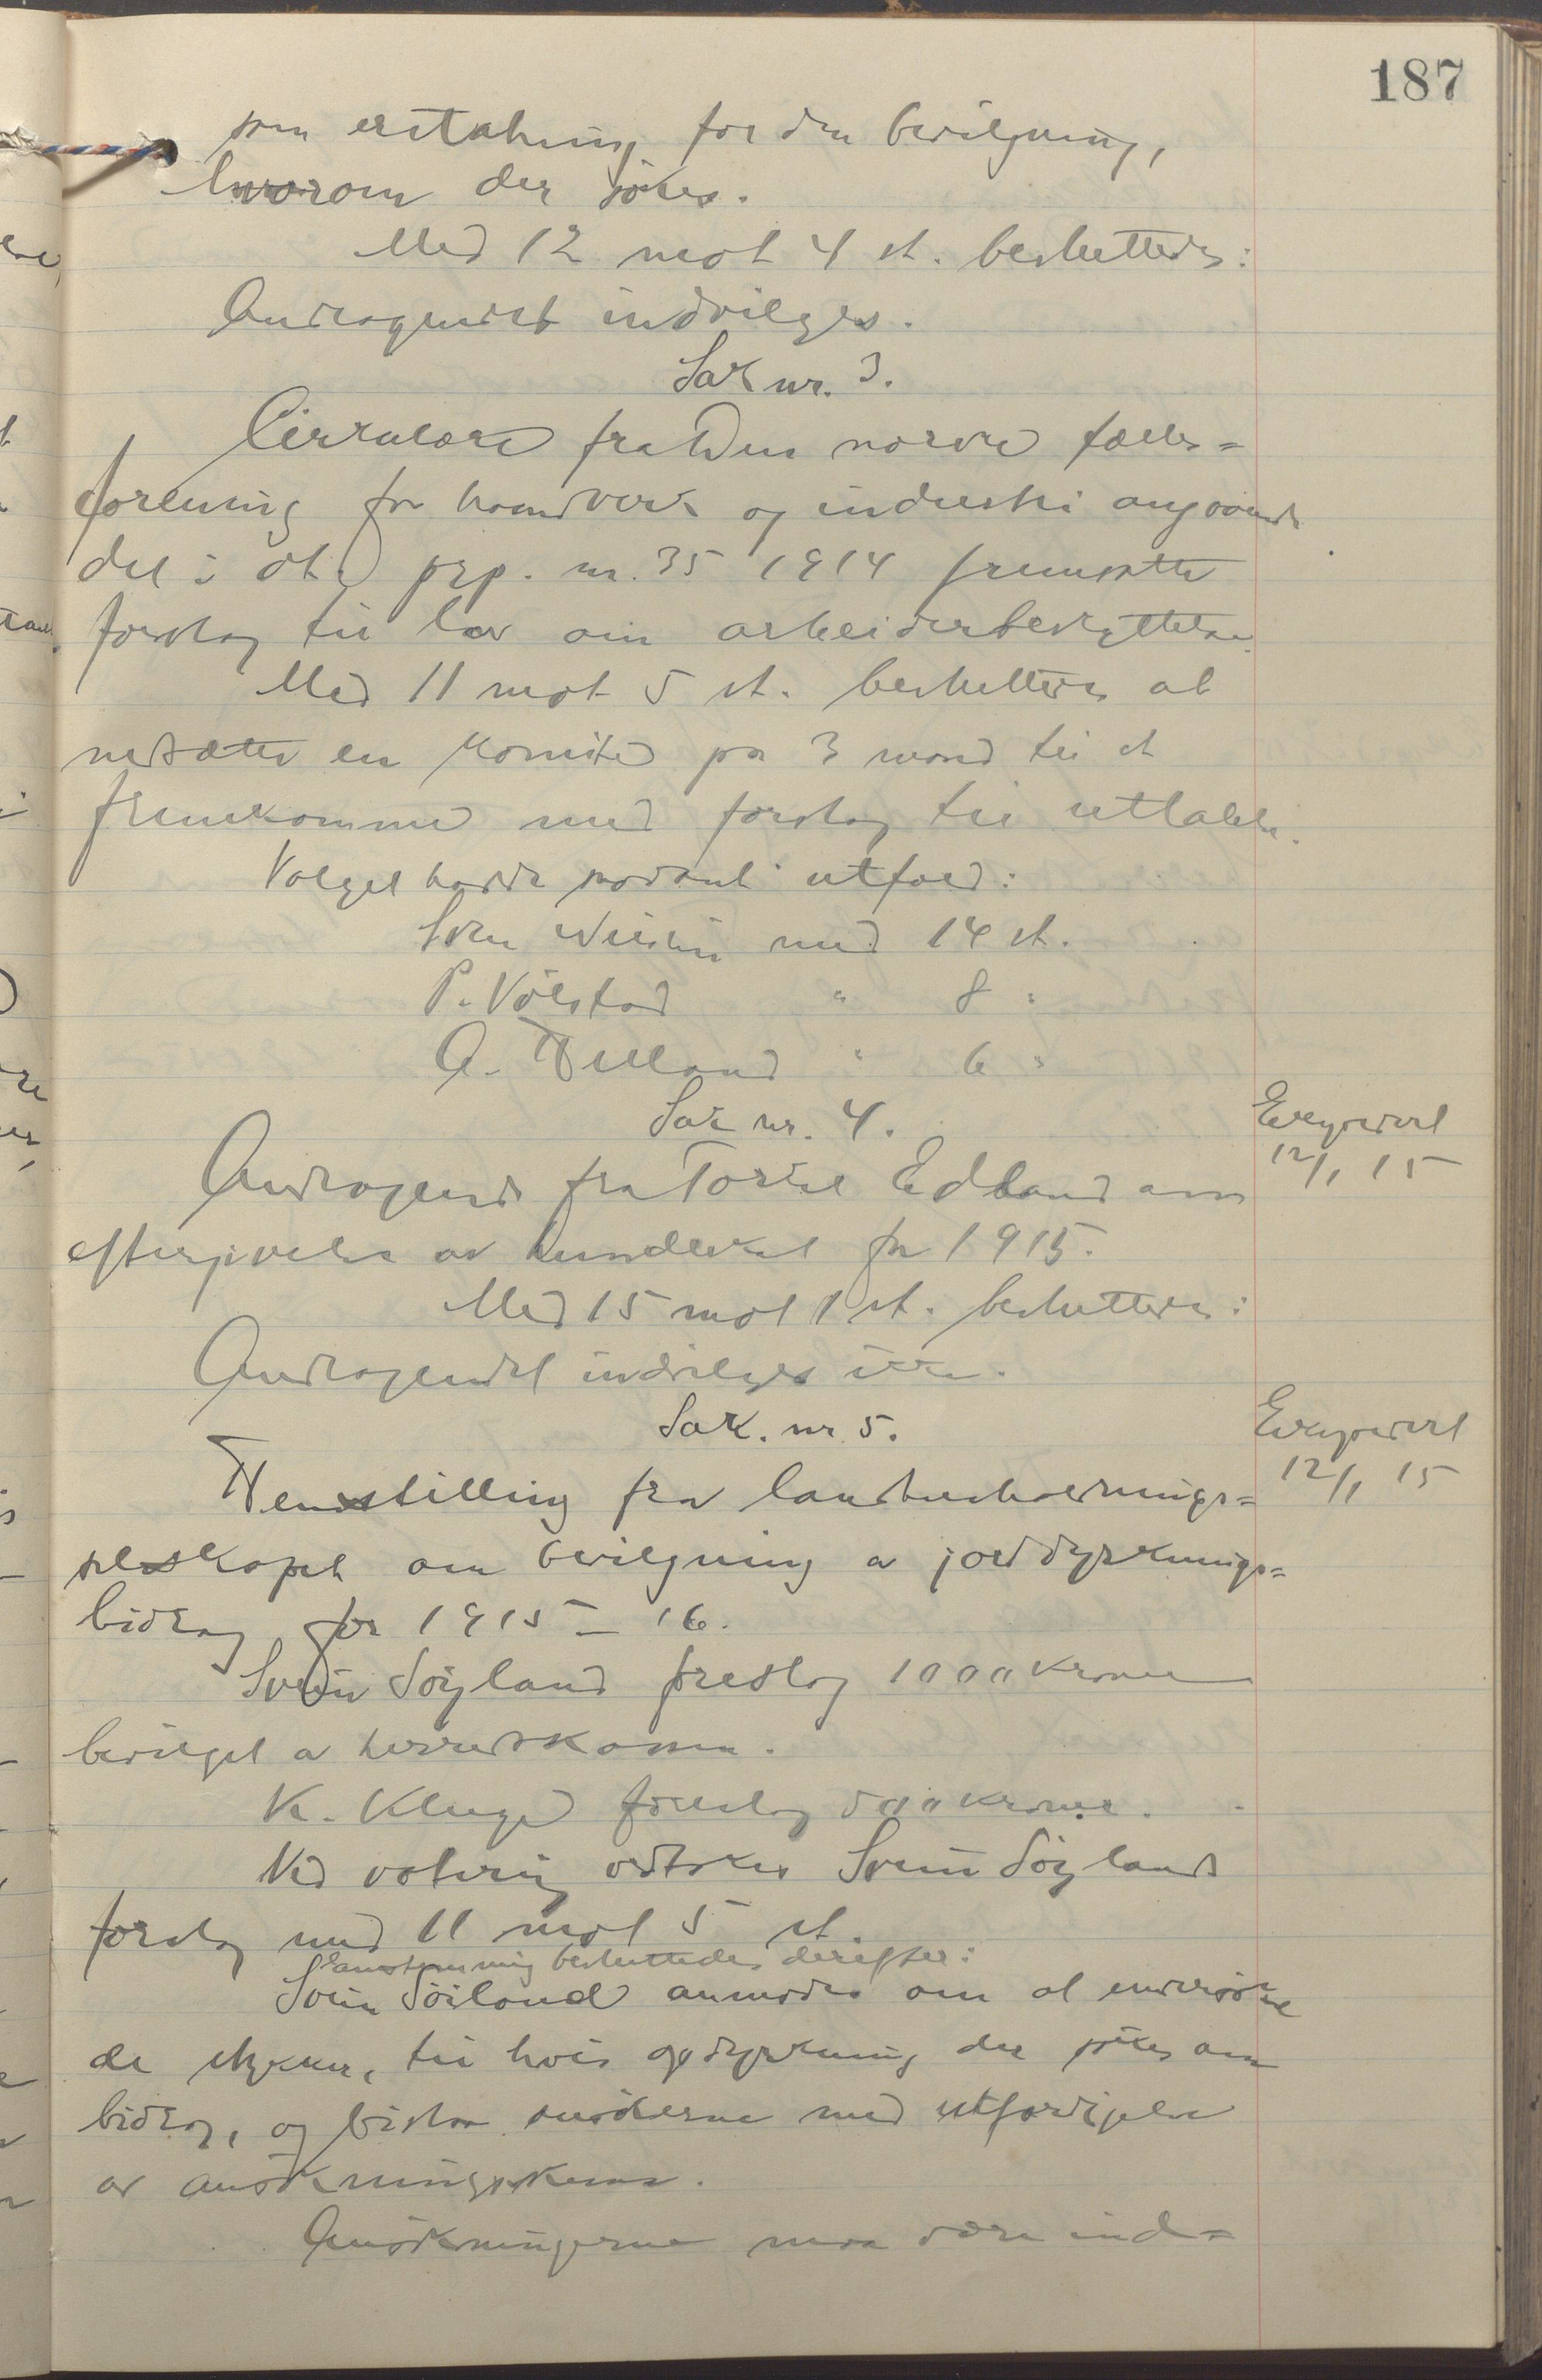 187
som erstatning for den bevilgning,
hvorom der søkes.
Med 12 mot 4 st. besluttedes:
Andragendet indvilges.
Sak nr. 3.
Cirkulære fra Den norske fælles=
forening for haandverk og industri angaaende
det i ot. prp. nr. 35 1914 fremsatte
forslag til lov om arbeiderbeskyttelse.
Med 11 mot 5 st. besluttedes at
nedsætte en komité paa 3 mand til at
fremkomme med forslag til uttalelse.
Valget hadde saadant utfald:
Sven med 14 st.
P. Vølstad " 8 "
A. Helland " 6 "
Sak nr. 4.
Expedert
12/1 15
Andragende fra Torkel Edland om
eftergivelse av hundeskat for 1915.
Med 15 mot 1 st. besluttedes:
Andragendet indvilges ikke.
Sak. nr 5.
Expedert
12/1 15
Henstilling fra landhusholdnings=
selskapet om bevilgning av jorddyrknings=
bidrag for 1915 – 16.
Svein Söyland foreslog 1000 kroner
bevilget av herredskassen.
K. Kluge foreslog 500 kroner.
Ved votering vedtokes Svein Söylands
forslag med 11 mot 5 st.
Enstemmig besluttedes derefter:
Svein Söiland anmodes om at undersöke
de stykker, til hvis opdyrkning der søkes om
bidrag, og bistaa ansökerne med utfærdigelse
av ansökningsskema.
Ansökningerne maa være ind=